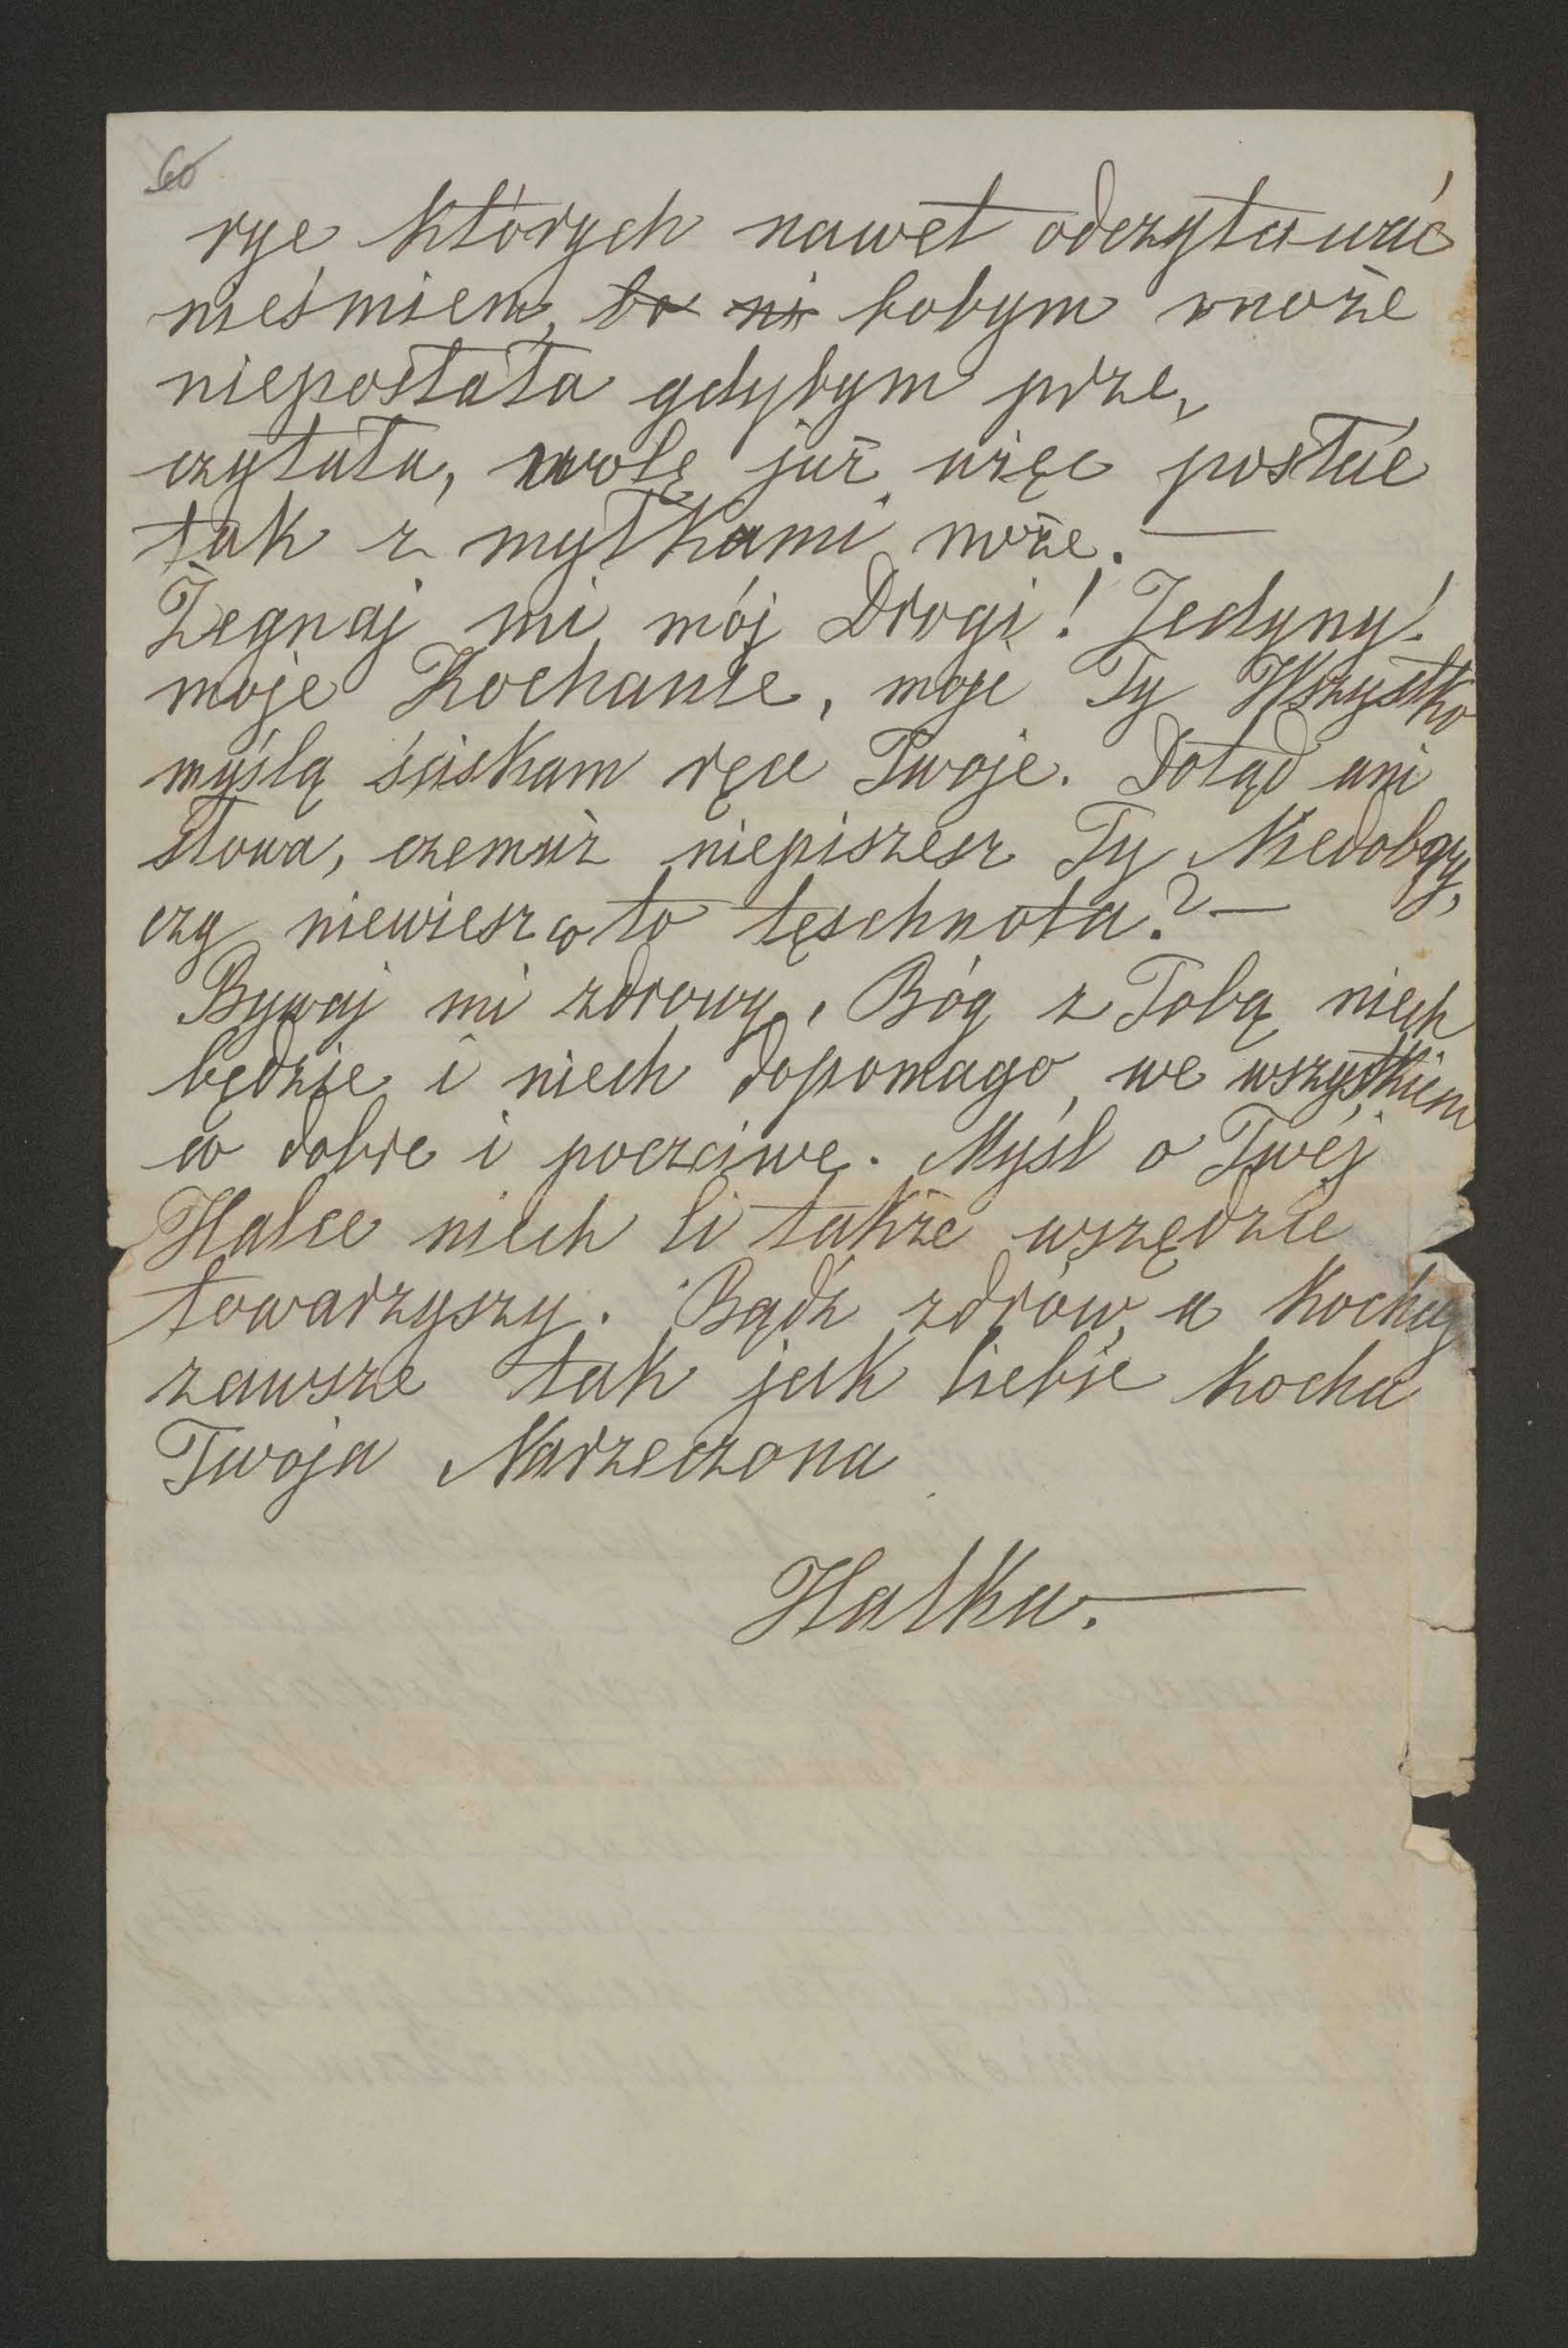 60
rye których nawet odczytawać
nieśmiem, bo ni bobym może
nieposłała gdybym prze,,
czytała, wolę już więc posłać
tak z myłkami może. —
Żegnaj mi mój Drogi! Jedyny!
moje Kochanie, moje Ty Wszystko
myślą ściskam ręce Twoje. Dotąd ani
słowa, czemuż niepiszesz Ty Niedobry,
czy niewiesz co to tęschnota? —
Bywaj mi zdrowy, Bóg z Tobą niech
będzie i niech dopomaga, we wszystkiem
co dobre i poczciwe. Myśl o Twéj
Halce niech Ci także wszędzie
towarzyszy. Bądź zdrów, a kochaj
zawsze tak jak Ciebie kocha
Twoja Narzeczona
Halka. —